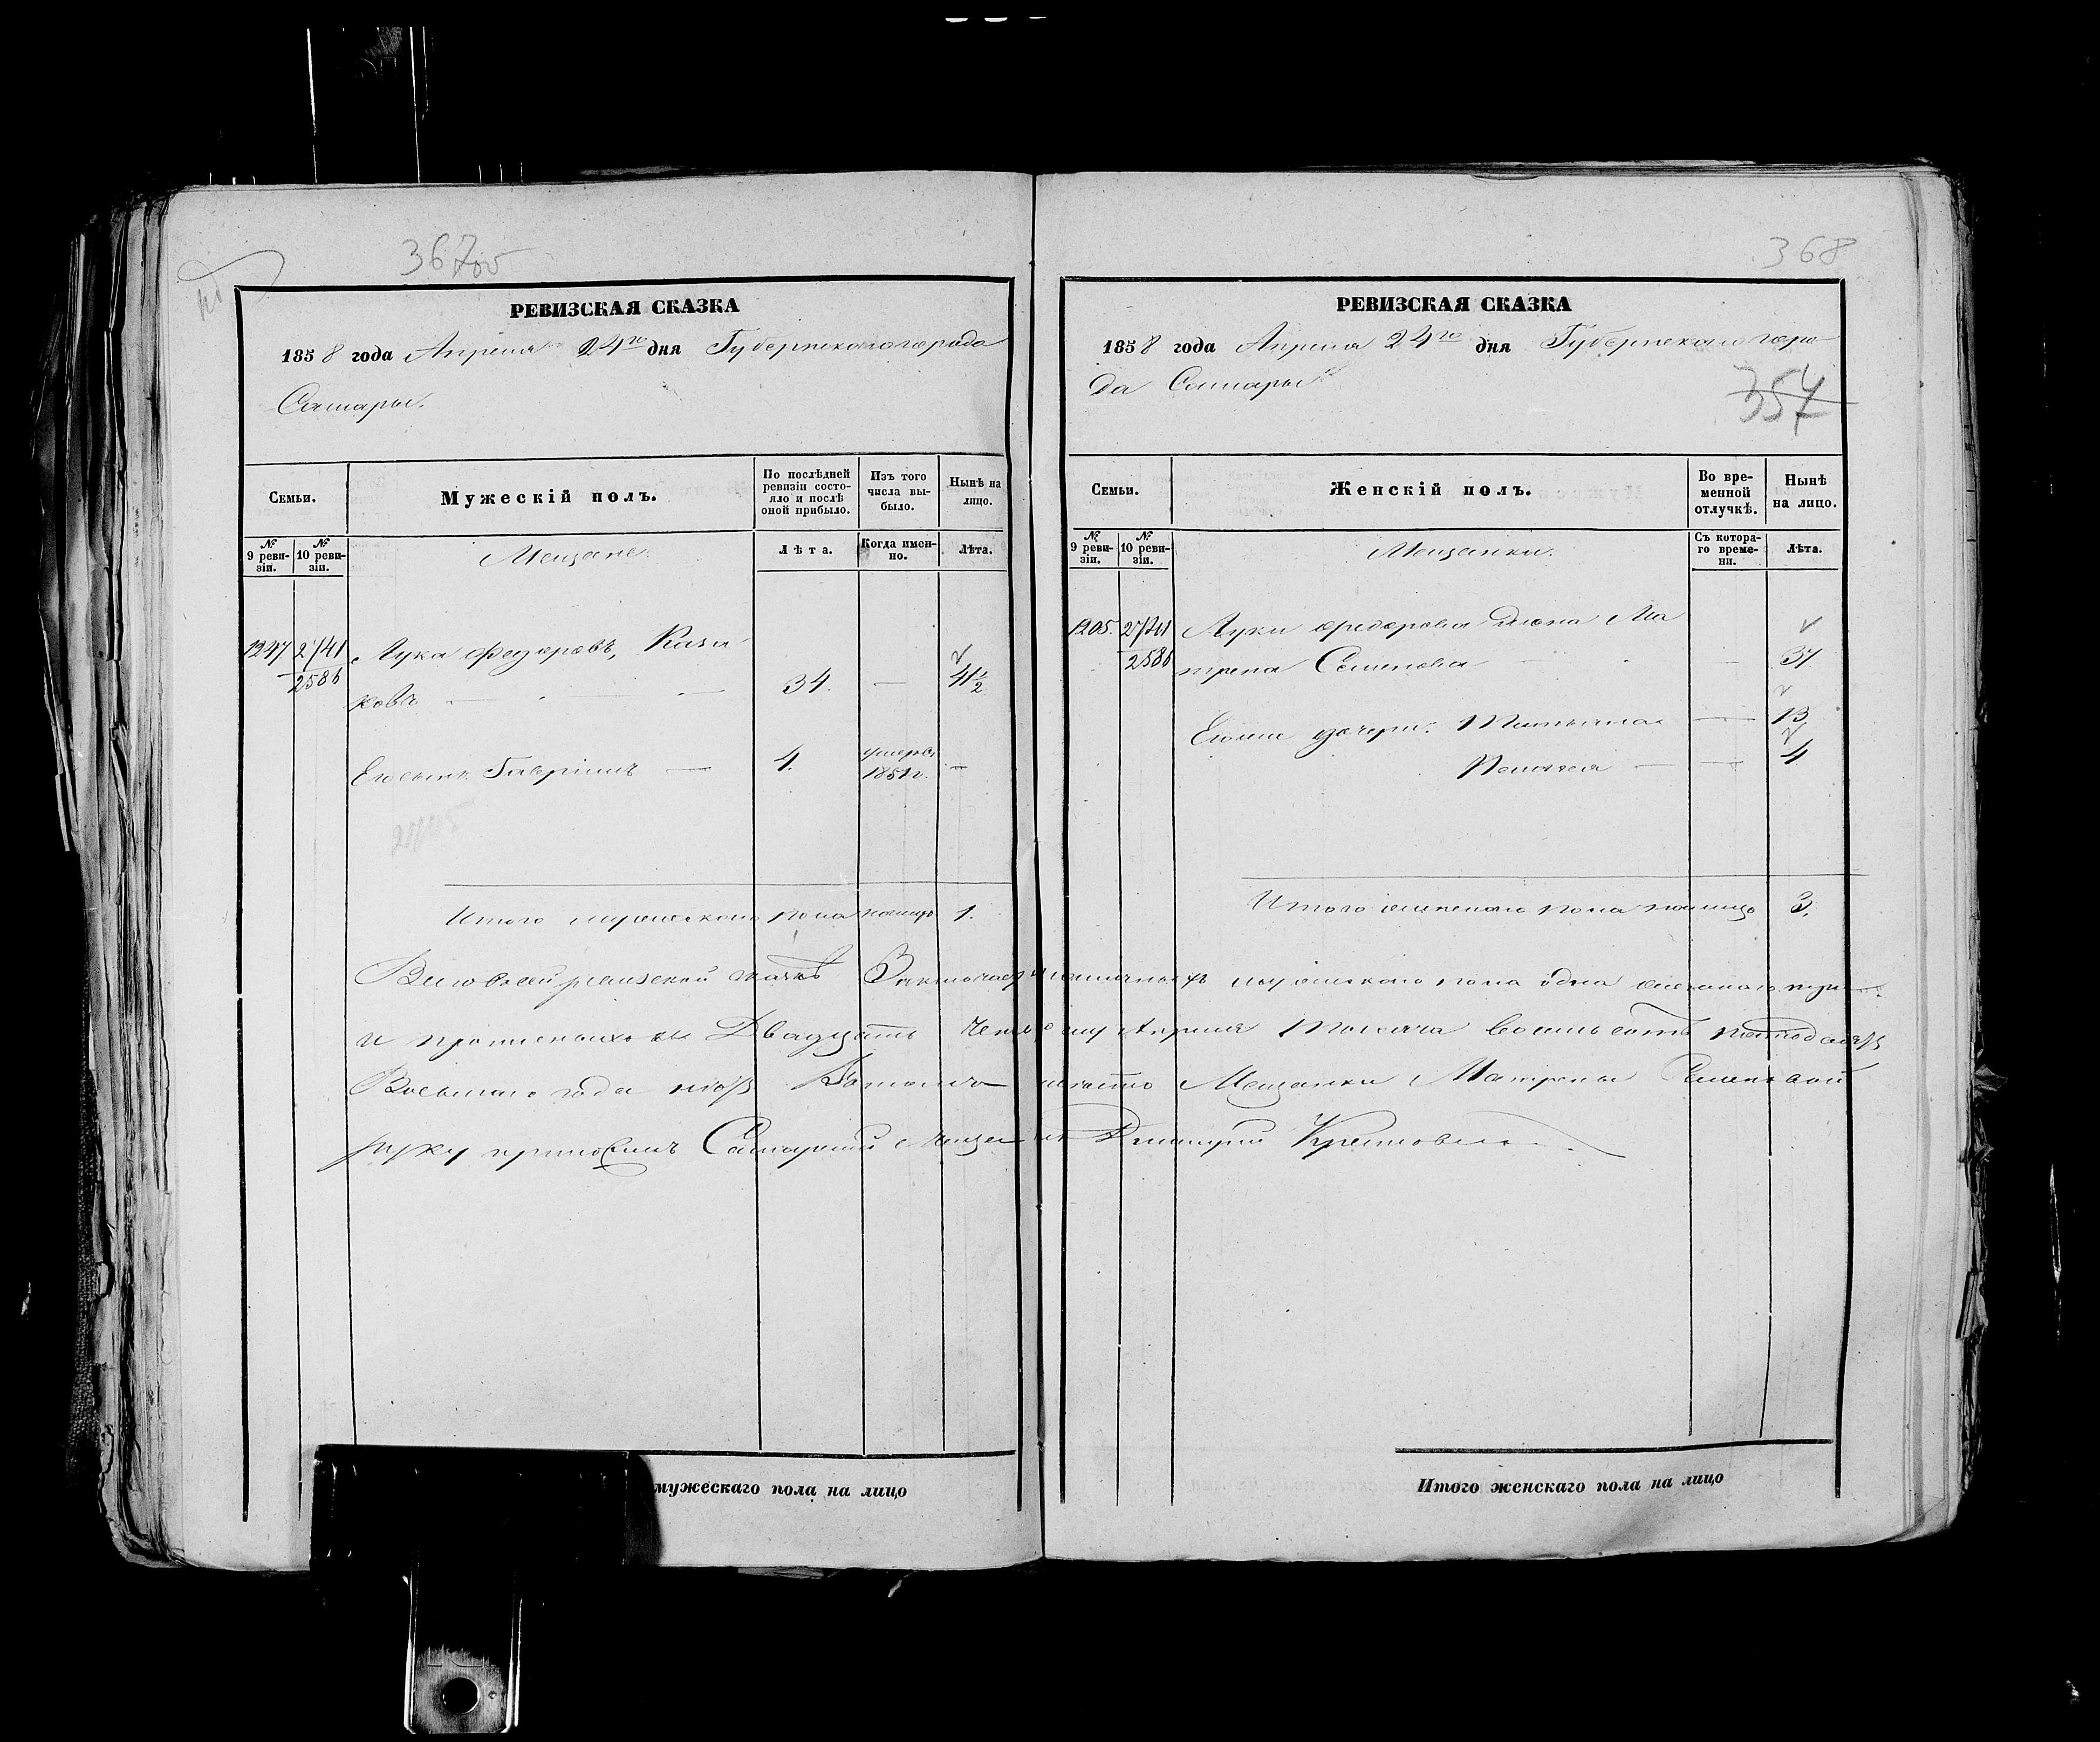 367об
РЕВИЗСКАЯ СКАЗКА
1858 года Апреля 24го дня Губернскаго города
Самары.
Семьи.
Мужескій полъ.
По послѣдней ревизіи состояло и послѣ оной прибыло.
Изъ того числа выбыло.
Нынѣ на лицо.
№ 9 ревизіи.
№ 10 ревизіи.
Мещане
Лѣта.
Когда именно.
Лѣта.
1247 2741 Лука Федоровъ, Каза
2586 ковъ — 34. — 41½
Его сынъ Гаврiилъ — 4. умеръ 1851г. —
Итого мужескаго пола налицо 1.
мужескаго пола на лицо
368
РЕВИЗСКАЯ СКАЗКА
1858 года Апреля 24го дня Губернскаго горо
да Самары
354
Семьи.
Женскій полъ.
Во временной отлучкѣ.
Нынѣ на лицо.
№ 9 ревизіи.
№ 10 ревизіи.
Мещанки.
Съ котораго времени.
Лѣта.
1205. 2741 Луки Федорова жена Ма
2586 трена Семенова — 37
Ихъ дочери: Татьяна — 13
Пелагея — 4
Итого женскаго пола налицо 3.
В сей ревизской сказкѣ Заключается наличныхъ мужскаго пола одна женскаго три
и прописныхъ нѣтъ Двадцать Апреля Тысяча восемь сотъ пятдесятъ
Восьмаго года Мещанки Матрены Семеновой
руку приложилъ Самарский Мещанинъ Дмитрий
Итого женскаго пола на лицо